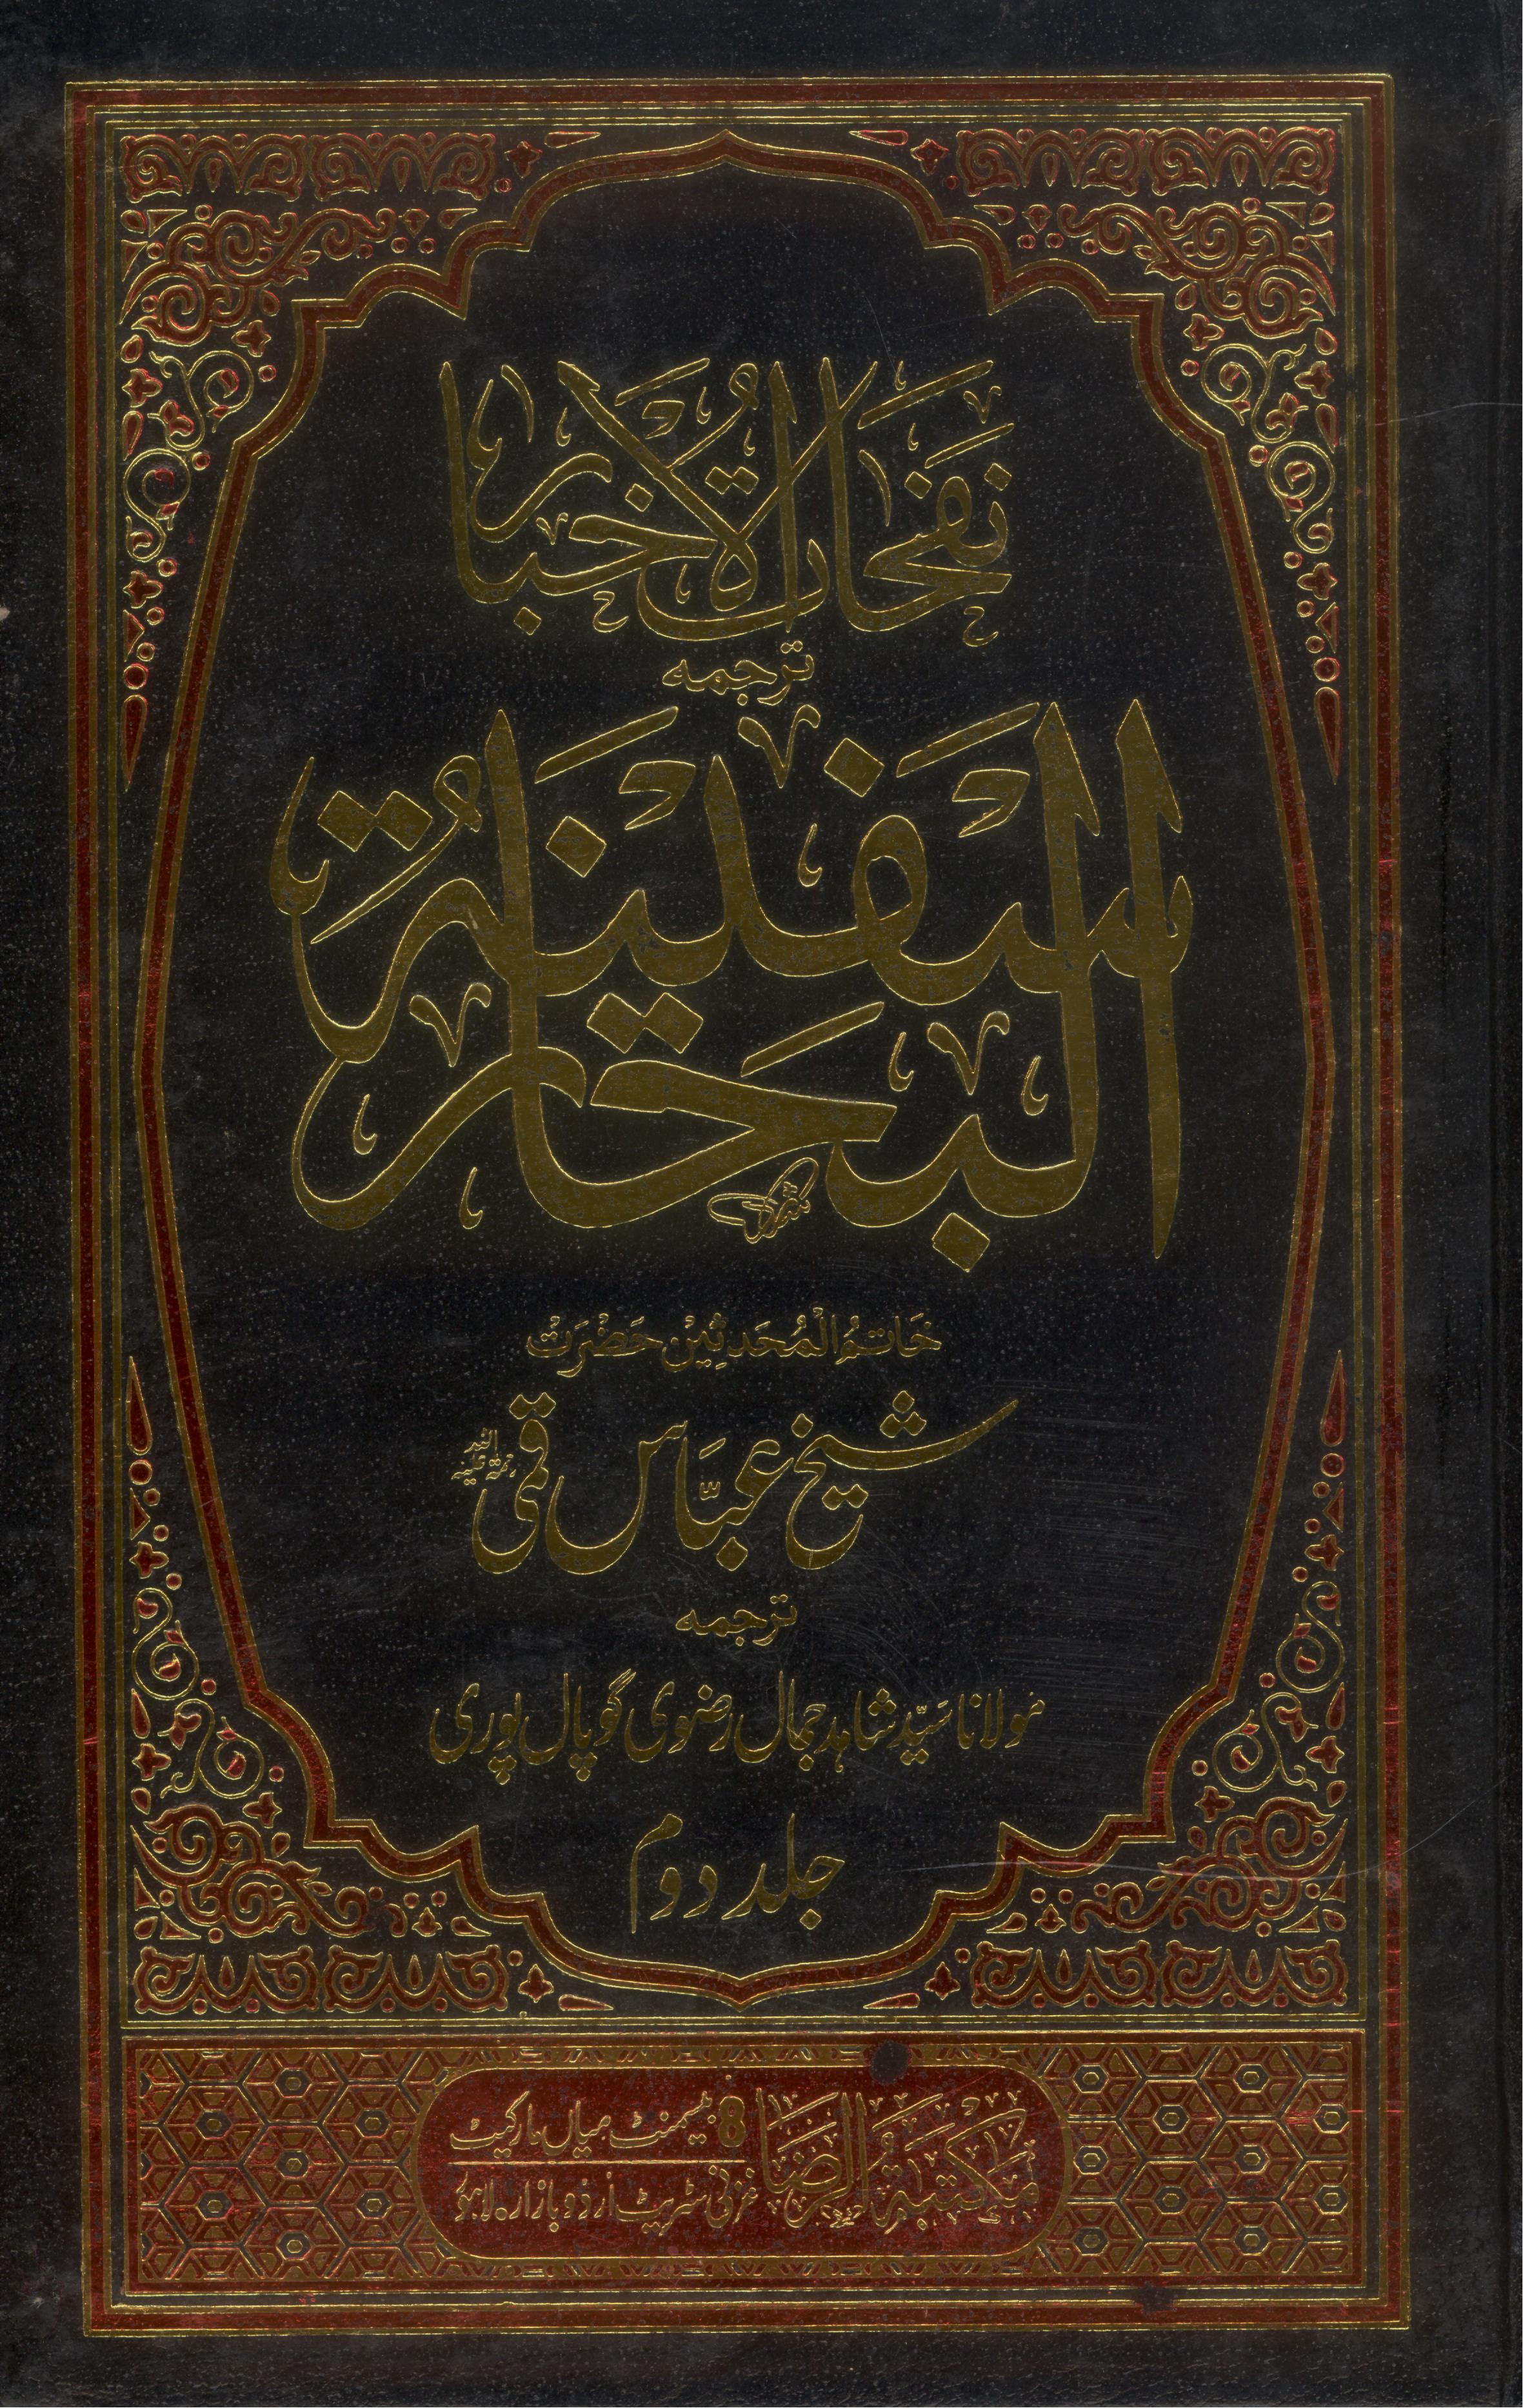 نفحات الاخبار
ترجمہ
سفینۃ
البحار
خَاتمُ الْمُحَدثِینْ حَضْرَتْ
شیخ عبّاس قمی رحمۃ اللہ علیہ
ترجمہ
مولانا سیّد شاہد جمال رضوی گوپال پوری
جلد دوم
مکتبۃ الرضا
8 بیسمنٹ میاں مارکیٹ
غزنی سٹریٹ اُردو بازار ۔ لاہور